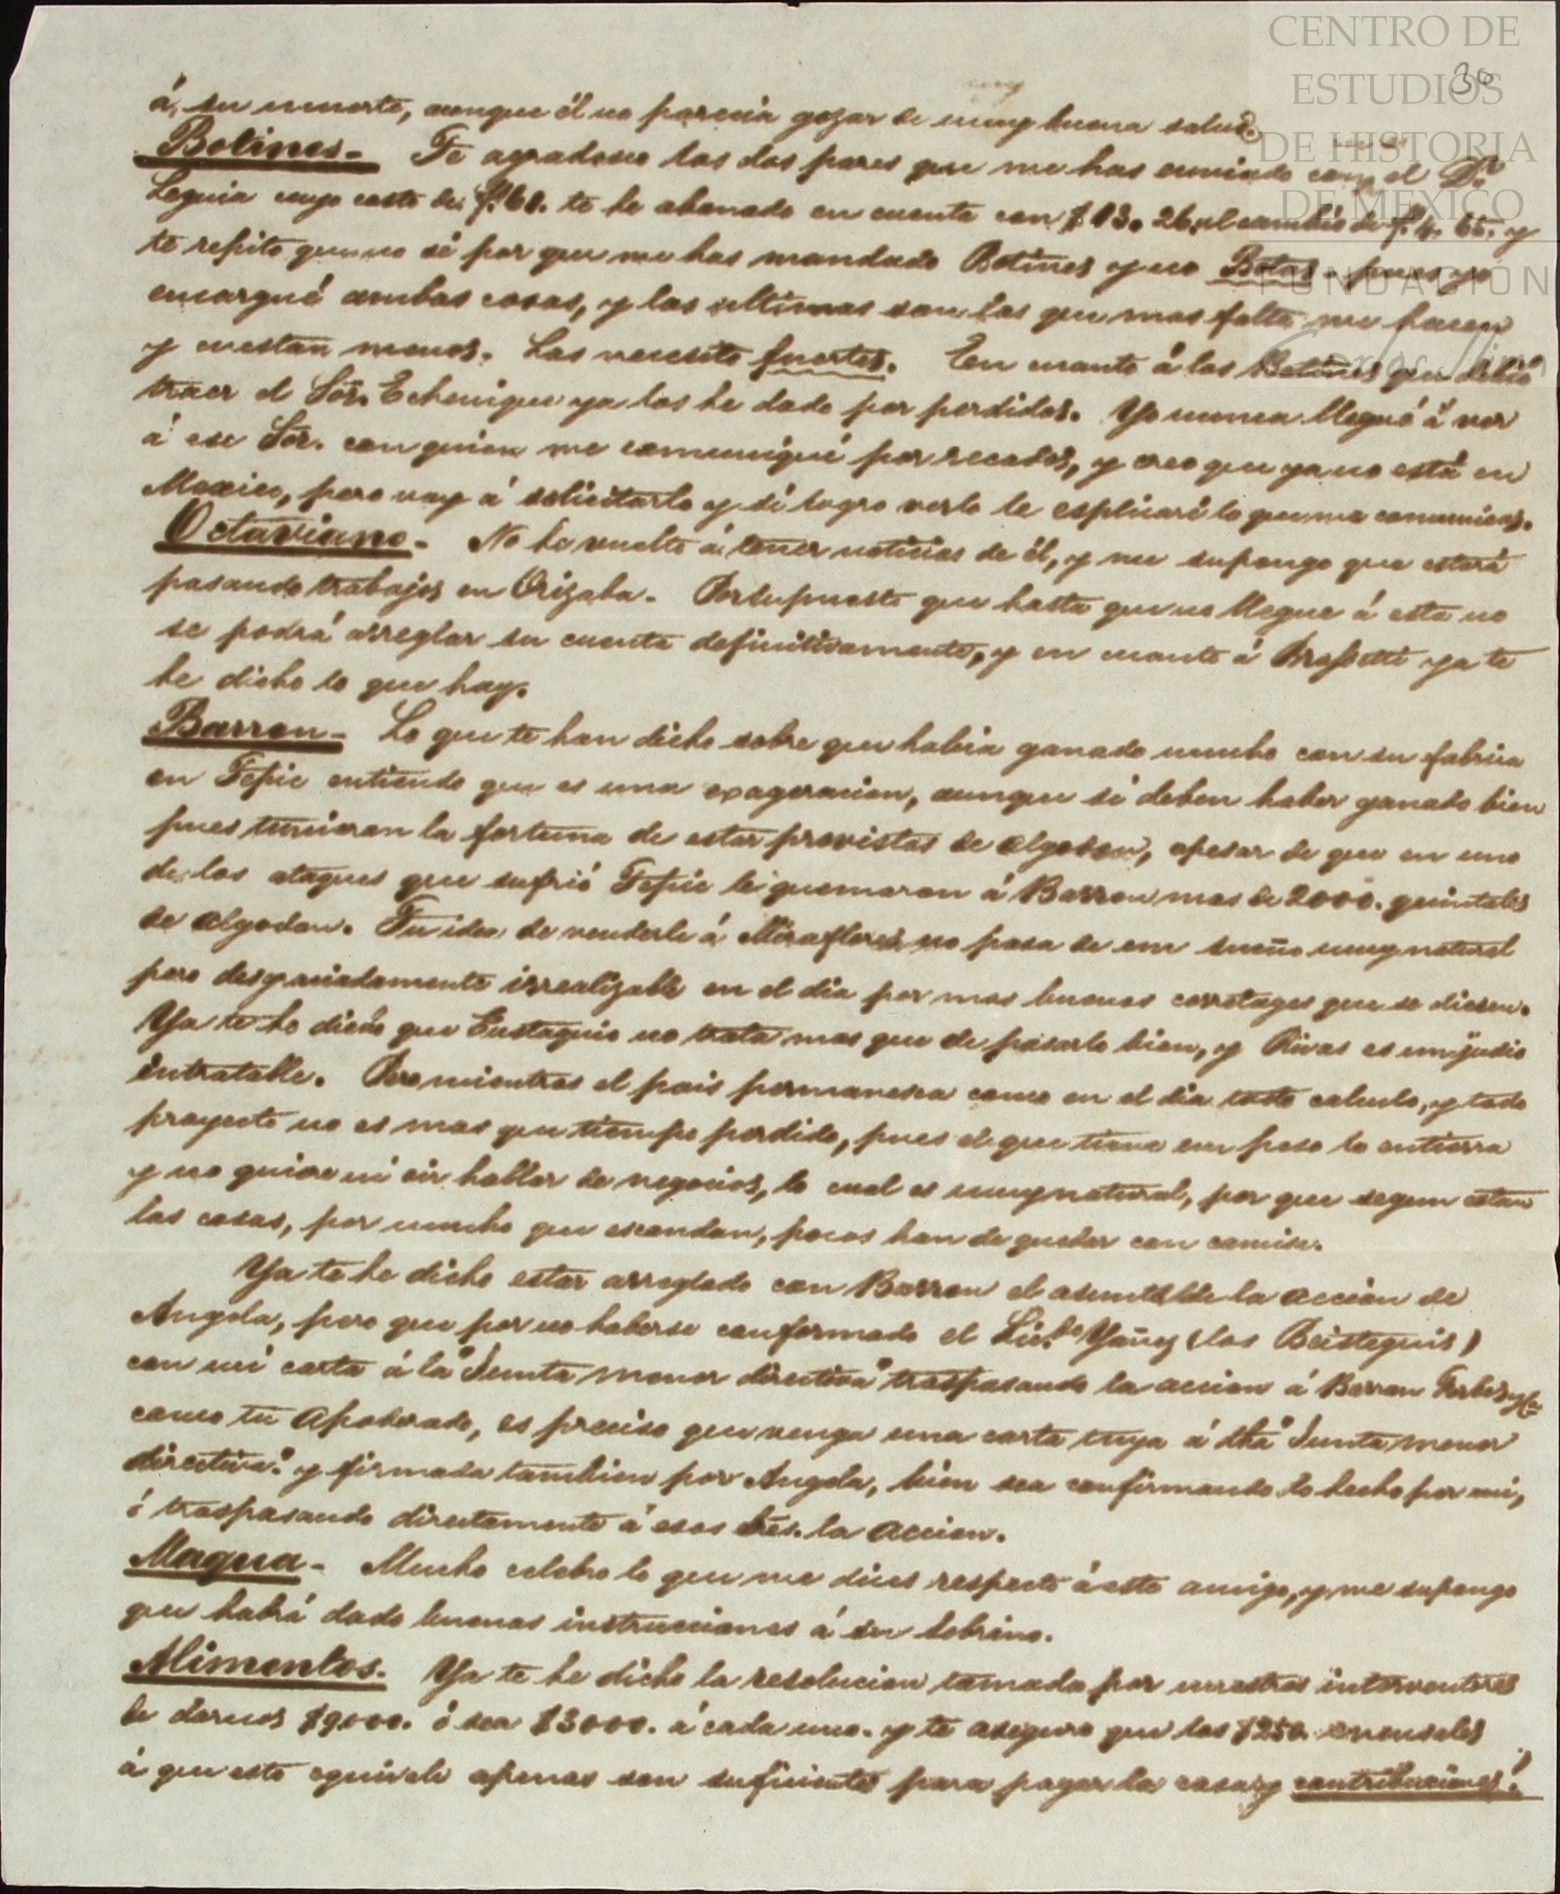 CENTRO DE
ESTUDIOS
DE HISTORIA
DE MEXICO
FUNDACIÓN
Carlos Slim
30
á su muerte, aunque él no parecia gozar de muy buena salud.
Botines- Te agradesco los dos pares que me has enviado con el Dr.
Leguia cuyo costo de f. 61. te he abonado en cuenta con $13.26 al cambio de f. 4. 65. y
te repito que no sé por que me has mandado Botines y no Botas, pues yo
encargué ambas cosas, y las ultimas son las que mas falta me hacen
y cuestan menos. Las necesito fuertes. En cuanto á los Botines que debió
traer el Sor. Echenique ya los he dado por perdidos. Yo nunca llegué á ver
á ese Sor. con quien me comuniqué por recados, y creo que ya no está en
Mexico, pero voy á solicitarlo y si logro verlo le esplicaré lo que me comunicas.
Octaviano- No he vuelto á tener noticias de él, y me supongo que estará
pasando trabajos en Orizaba. Por supuesto que hasta que no llegue á esta no
se podrá arreglar su cuenta definitivamente, y en cuanto á ya te
he dicho lo que hay.
Barron- Lo que te han dicho sobre que habia ganado mucho con su fabrica
en Tepic entiendo que es una exageracion, aunque si deben haber ganado bien
pues tuvieron la fortuna de estar provistos de algodon, apesar de que en uno
de los ataques que sufrió Tepic le quemaron á Barron mas de 2000. quintales
de algodon. Tu idea de venderle á Miraflores no pasa de un sueño muy natural
pero desgraciadamente irrealizable en el dia por mas buenos corretages que se diesen.
Ya te he dicho que Eustaquio no trata mas que de pasarlo bien, y Rivas es un judio
intratable. Pero mientras el pais permanesca como en el dia todo calculo, y todo
proyecto no es mas que tiempo perdido, pues el que tiene un peso lo entierra
y no quiere ni oir hablar de negocios, lo cual es muy natural, por que segun estan
las cosas, por mucho que escondan, pocos han de quedar con camisa.
Ya te he dicho estar arreglado con Barron el asunto de la accion de
Angela, pero que por no haberse conformado el Licdo Yañez (los Beisteguis)
con mi carta á la "Junta menor directiva" traspasando la accion á Barron Forbes y Ca.
como tu Apoderado, es preciso que venga una carta tuya á dha "Junta menor
directiva" y firmada tambien por Angela, bien sea confirmando lo hecho por mi,
ó traspasando directamente á esos Sres. la accion.
Magua- Mucho celebro lo que me dices respecto á este amigo, y me supongo
que habrá dado buenas instrucciones á su sobrino.
Alimentos. Ya te he dicho la resolucion tomada por nuestros interventores
de darnos $9000. ó sea $3000. á cada uno. y te aseguro que los $250. mensuales
á que esto equivale apenas son suficientes para pagar la casa y contribuciones!